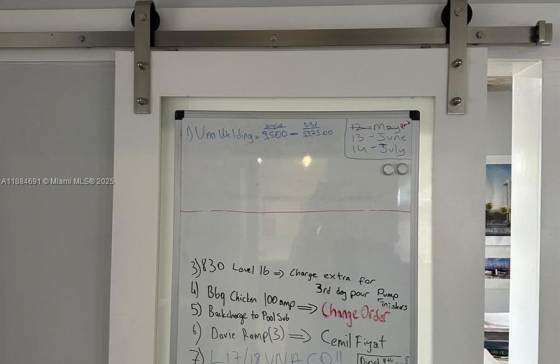 1) Una Welding = 9500 -
12 - May
13 - June
14 - July
A11884691 © Miami MLS® 2025
3) 830 Level 16 ⇒ Charge extra for
3rd day pour Pump
Finishers
4) Bbq Chicken 100 amp ⇒ Change Order
5) Backcharge to Pool Sub
6) Davie Ramp (3) ⇒ Cemil Fiyat
7) L17/18 UNA CO!!